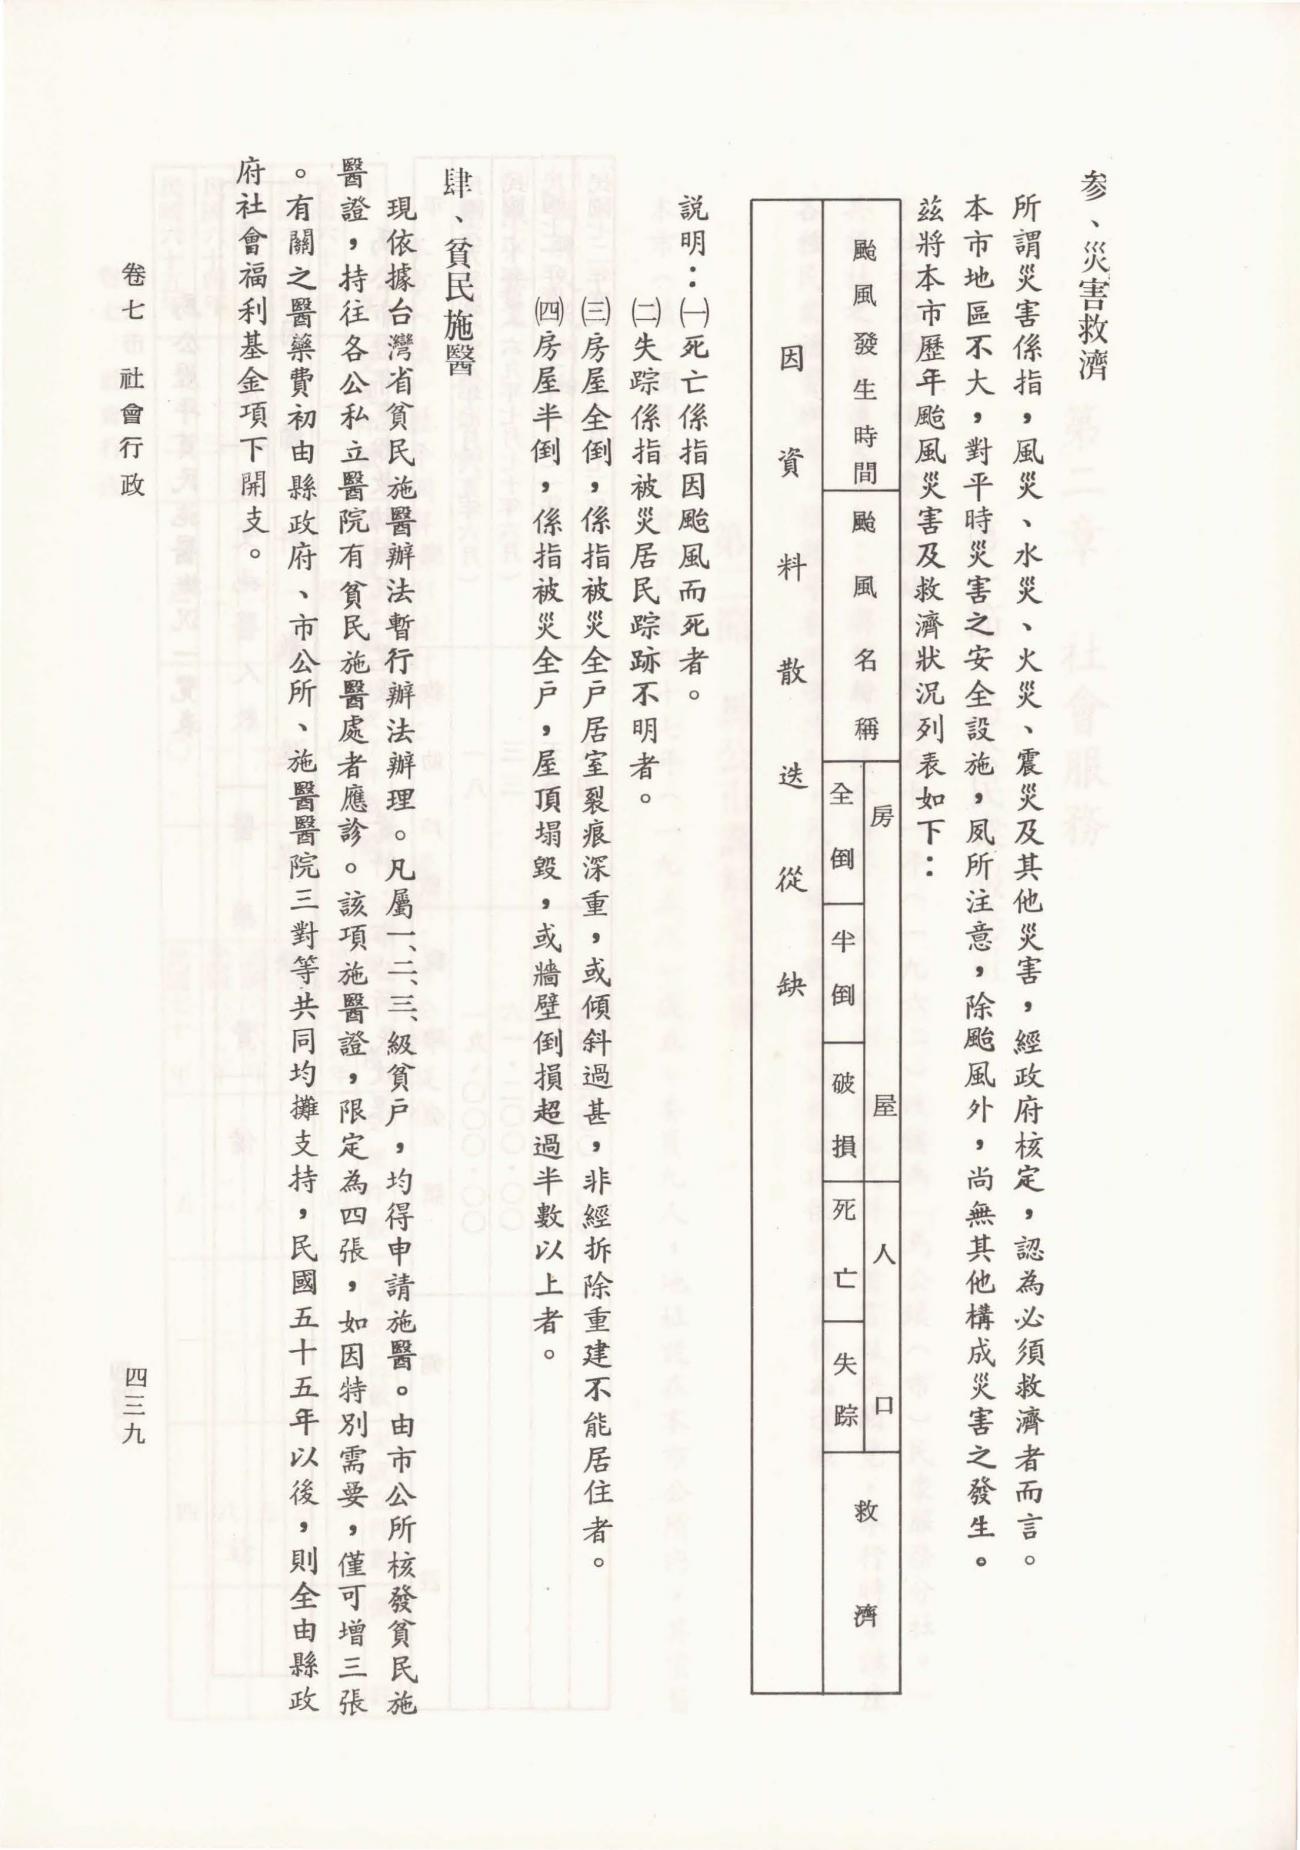 參、災害救濟
所謂災害係指，風災、水災、火災、震災及其他災害，經政府核定，認為必須救濟者而言。
本市地區不大，對平時災害之安全設施，夙所注意，除颱風外，尚無其他構成災害之發生。
茲將本市歷年颱風災害及救濟狀況列表如下：
颱風發生時間
颱風名稱
房屋
全倒
半倒
破損
人口
死亡
失踪
救濟
因資料散迭從缺
說明：㈠死亡係指因颱風而死者。
㈡失踪係指被災居民踪跡不明者。
㈢房屋全倒，係指被災全戶居室裂痕深重，或傾斜過甚，非經拆除重建不能居住者。
㈣房屋半倒，係指被災全戶，屋頂塌毀，或牆壁倒損超過半數以上者。
肆、貧民施醫
現依據台灣省貧民施醫辦法暫行辦法辦理。凡屬一、二、三、級貧戶，均得申請施醫。由市公所核發貧民施
醫證，持往各公私立醫院有貧民施醫處者應診。該項施醫證，限定為四張，如因特別需要，僅可增三張
。有關之醫藥費初由縣政府、市公所、施醫醫院三對等共同均攤支持，民國五十五年以後，則全由縣政
府社會福利基金項下開支。
卷七 社會行政
四三九